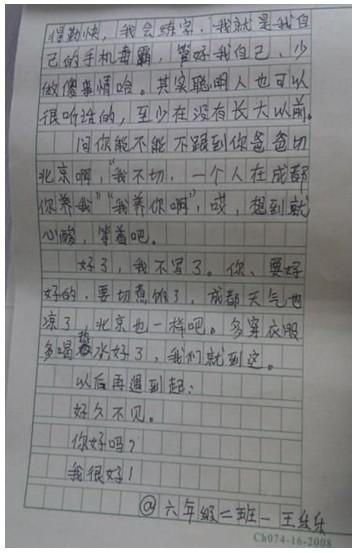 得勤快，我会练字，我就是我自
己的手机毒霸，管好我自己、少
做傻事情哈。其实聪明人也可以
很听话的，至少在没有长大以前。
问你能不能不跟到你爸爸切
北京啊，“我不切，一个人在成都
你养我”“我养你啊”，哎，想到就
心酸，等着吧。
好了，我不写了。你、要好
好的，要切煮饭了，成都天气也
凉了，北京也一样吧。多穿衣服
多喝热水好了，我们就到这。
以后再遇到起：
好久不见。
你好吗？
我很好！
@六年级二班—王丝乐
Ch074-16-2008